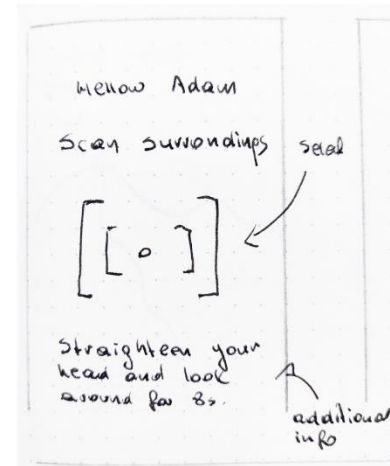 Hellow Adam
Scan surrondings
Straighteen your
head and look
around for 8s.
additional
info